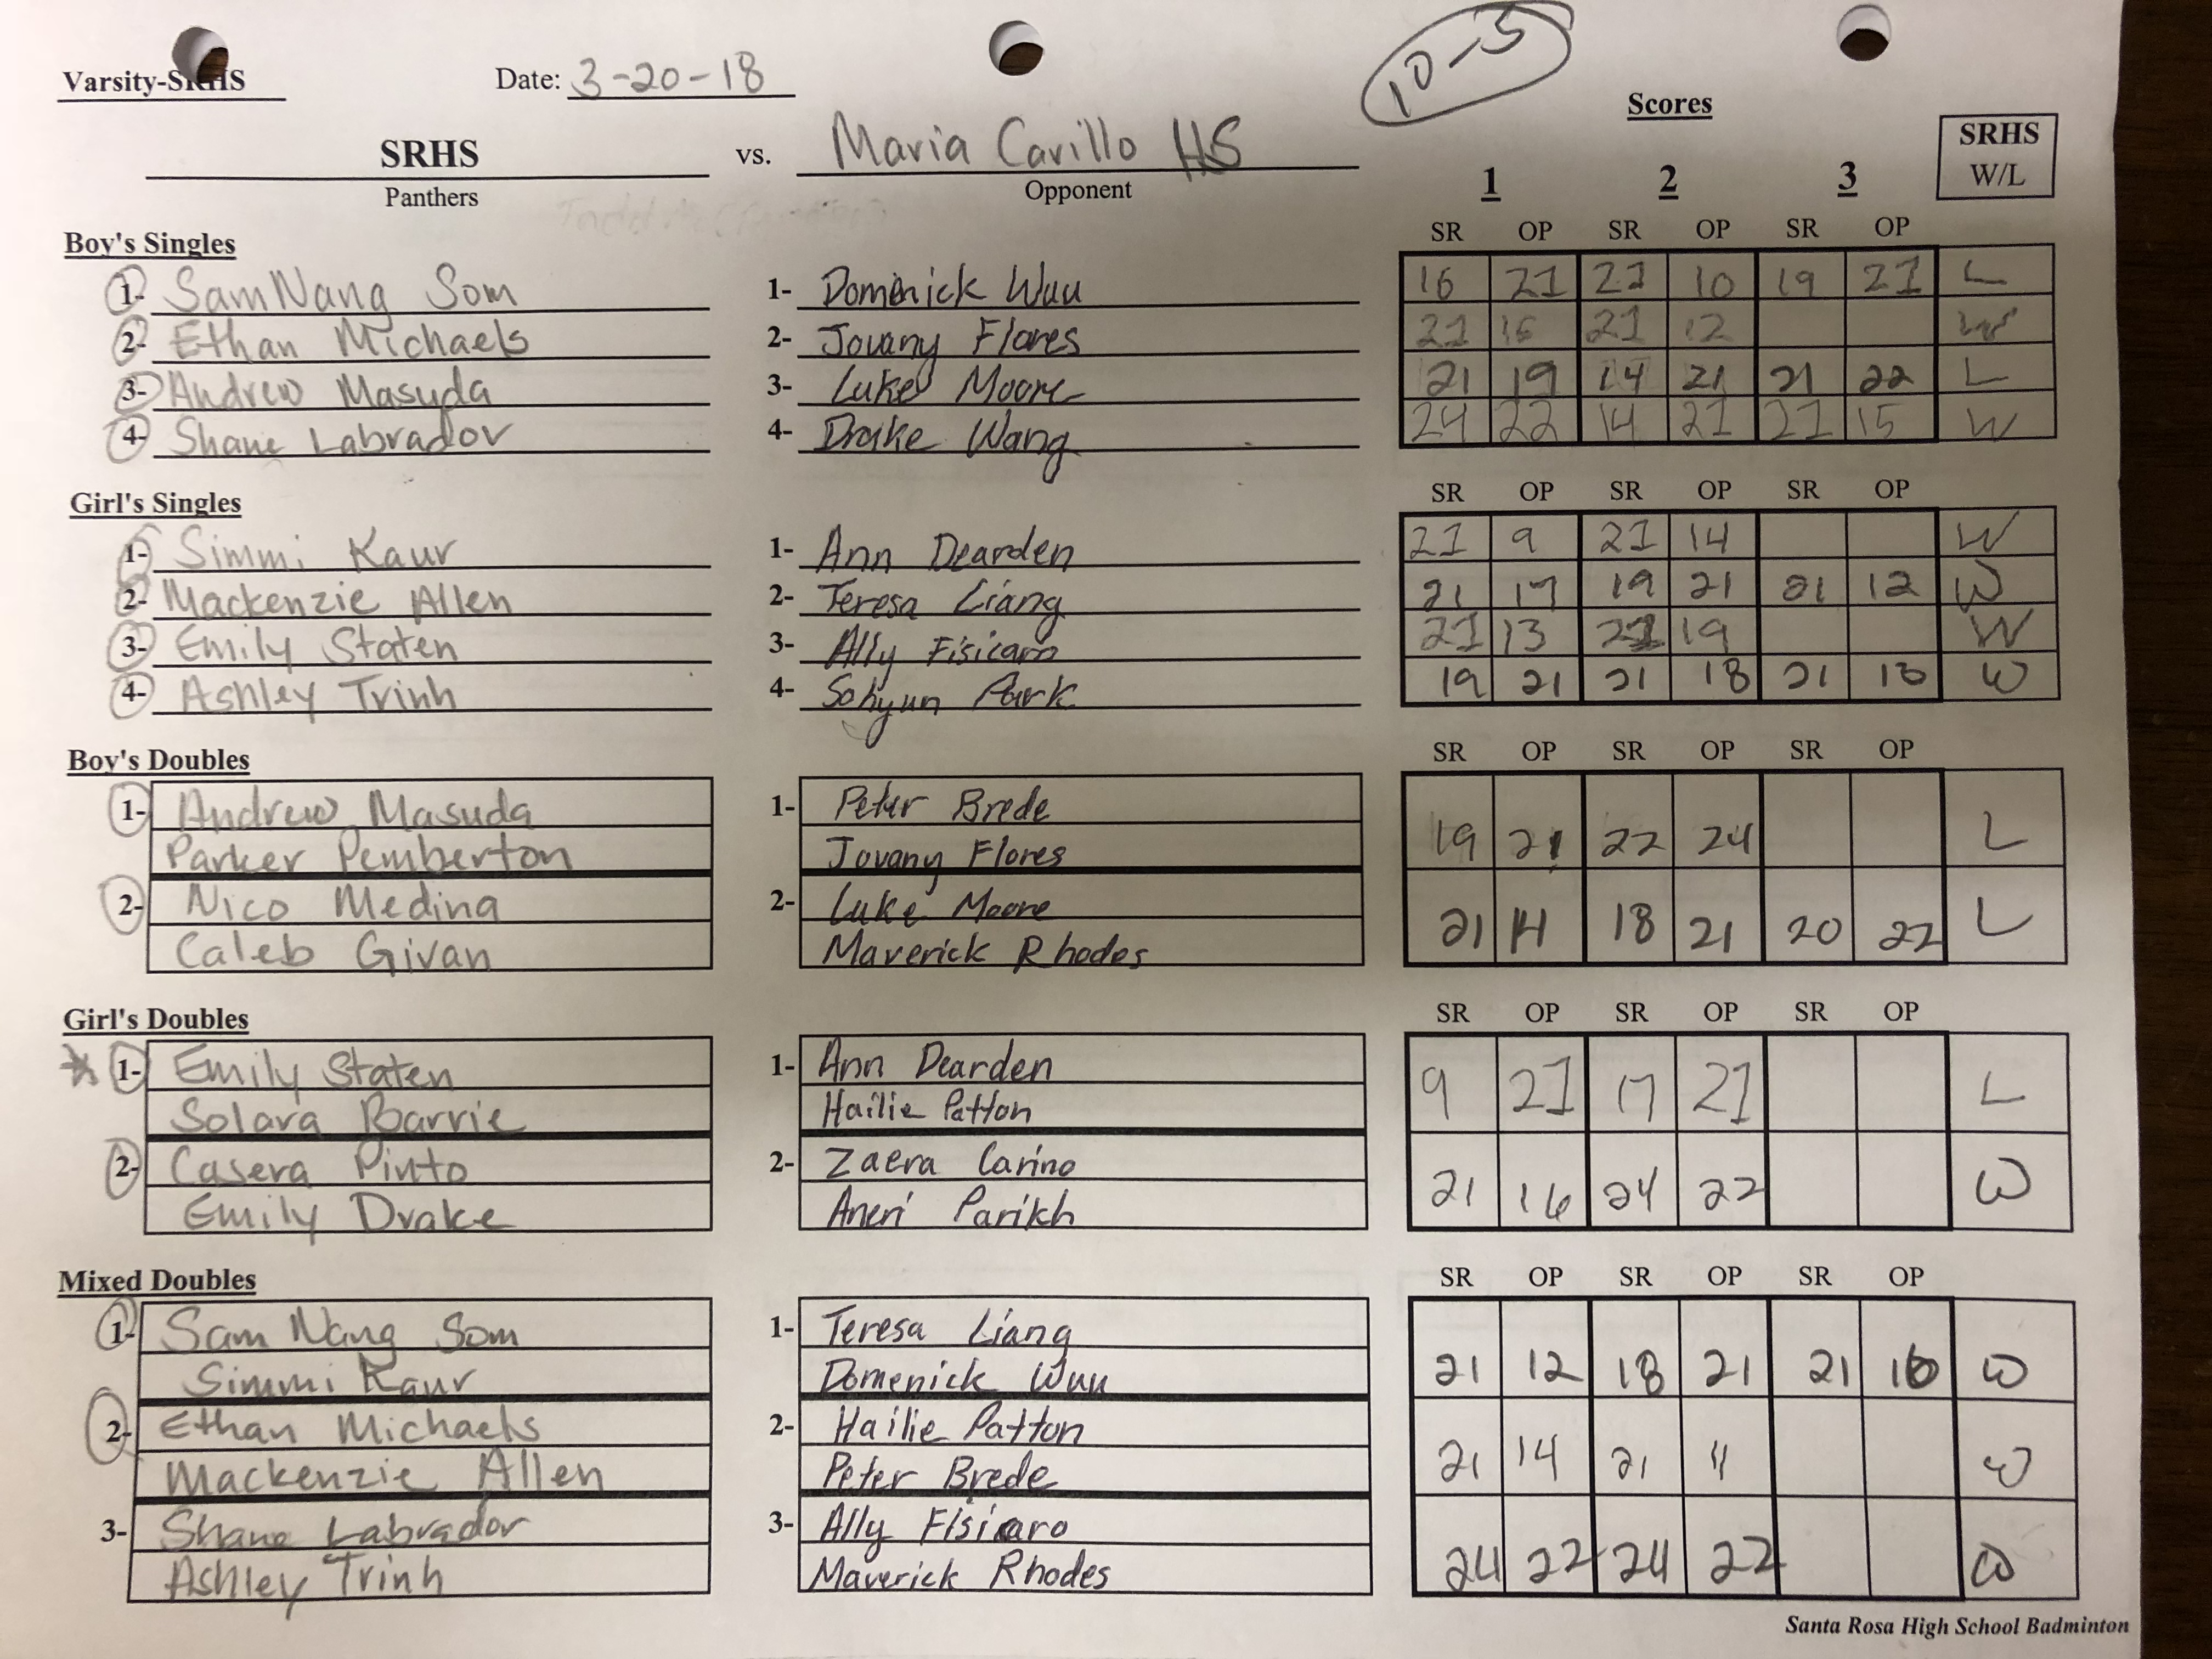 10-5
Varsity-SRHS Date: 3-20-18
Scores
SRHS vs. Maria Carillo HS
Panthers Opponent
1 2 3 SRHS W/L
Boy's Singles SR OP SR OP SR OP
1- SamNang Som 1- Domenick Wuu 16 21 21 10 19 21 L
2- Ethan Michaels 2- Jovany Flores 21 16 21 12 W
3- Andrew Masuda 3- Luke Moore 21 19 14 21 21 22 L
4- Shane Labrador 4- Drake Wang 24 22 14 21 21 15 W
Girl's Singles SR OP SR OP SR OP
1- Simmi Kaur 1- Ann Dearden 21 9 21 14 W
2- Mackenzie Allen 2- Teresa Liang 21 17 19 21 21 12 W
3- Emily Staten 3- Ally Fisicaro 21 13 21 19 W
4- Ashley Trinh 4- Sohyun Park 19 21 21 18 21 W
Boy's Doubles SR OP SR OP SR OP
1- Andrew Masuda 1- Peter Brede
Parker Pemberton Jovany Flores 19 21 22 24 L
2- Nico Medina 2- Luke Moore
Caleb Givan Maverick Rhodes 21 14 18 21 20 22 L
Girl's Doubles SR OP SR OP SR OP
1- Emily Staten 1- Ann Dearden
Solara Barrie Hailie Patton 9 21 17 21 L
2- Casera Pinto 2- Zaera Carino
Emily Drake Aneri Parikh 21 16 24 22 W
Mixed Doubles SR OP SR OP SR OP
1- Sam Nang Som 1- Teresa Liang
Simmi Kaur Domenick Wuu 21 12 18 21 21 16 W
2- Ethan Michaels 2- Hailie Patton
Mackenzie Allen Peter Brede 21 14 21 11 W
3- Shane Labrador 3- Ally Fisicaro
Ashley Trinh Maverick Rhodes 24 22 24 22 W
Santa Rosa High School Badminton